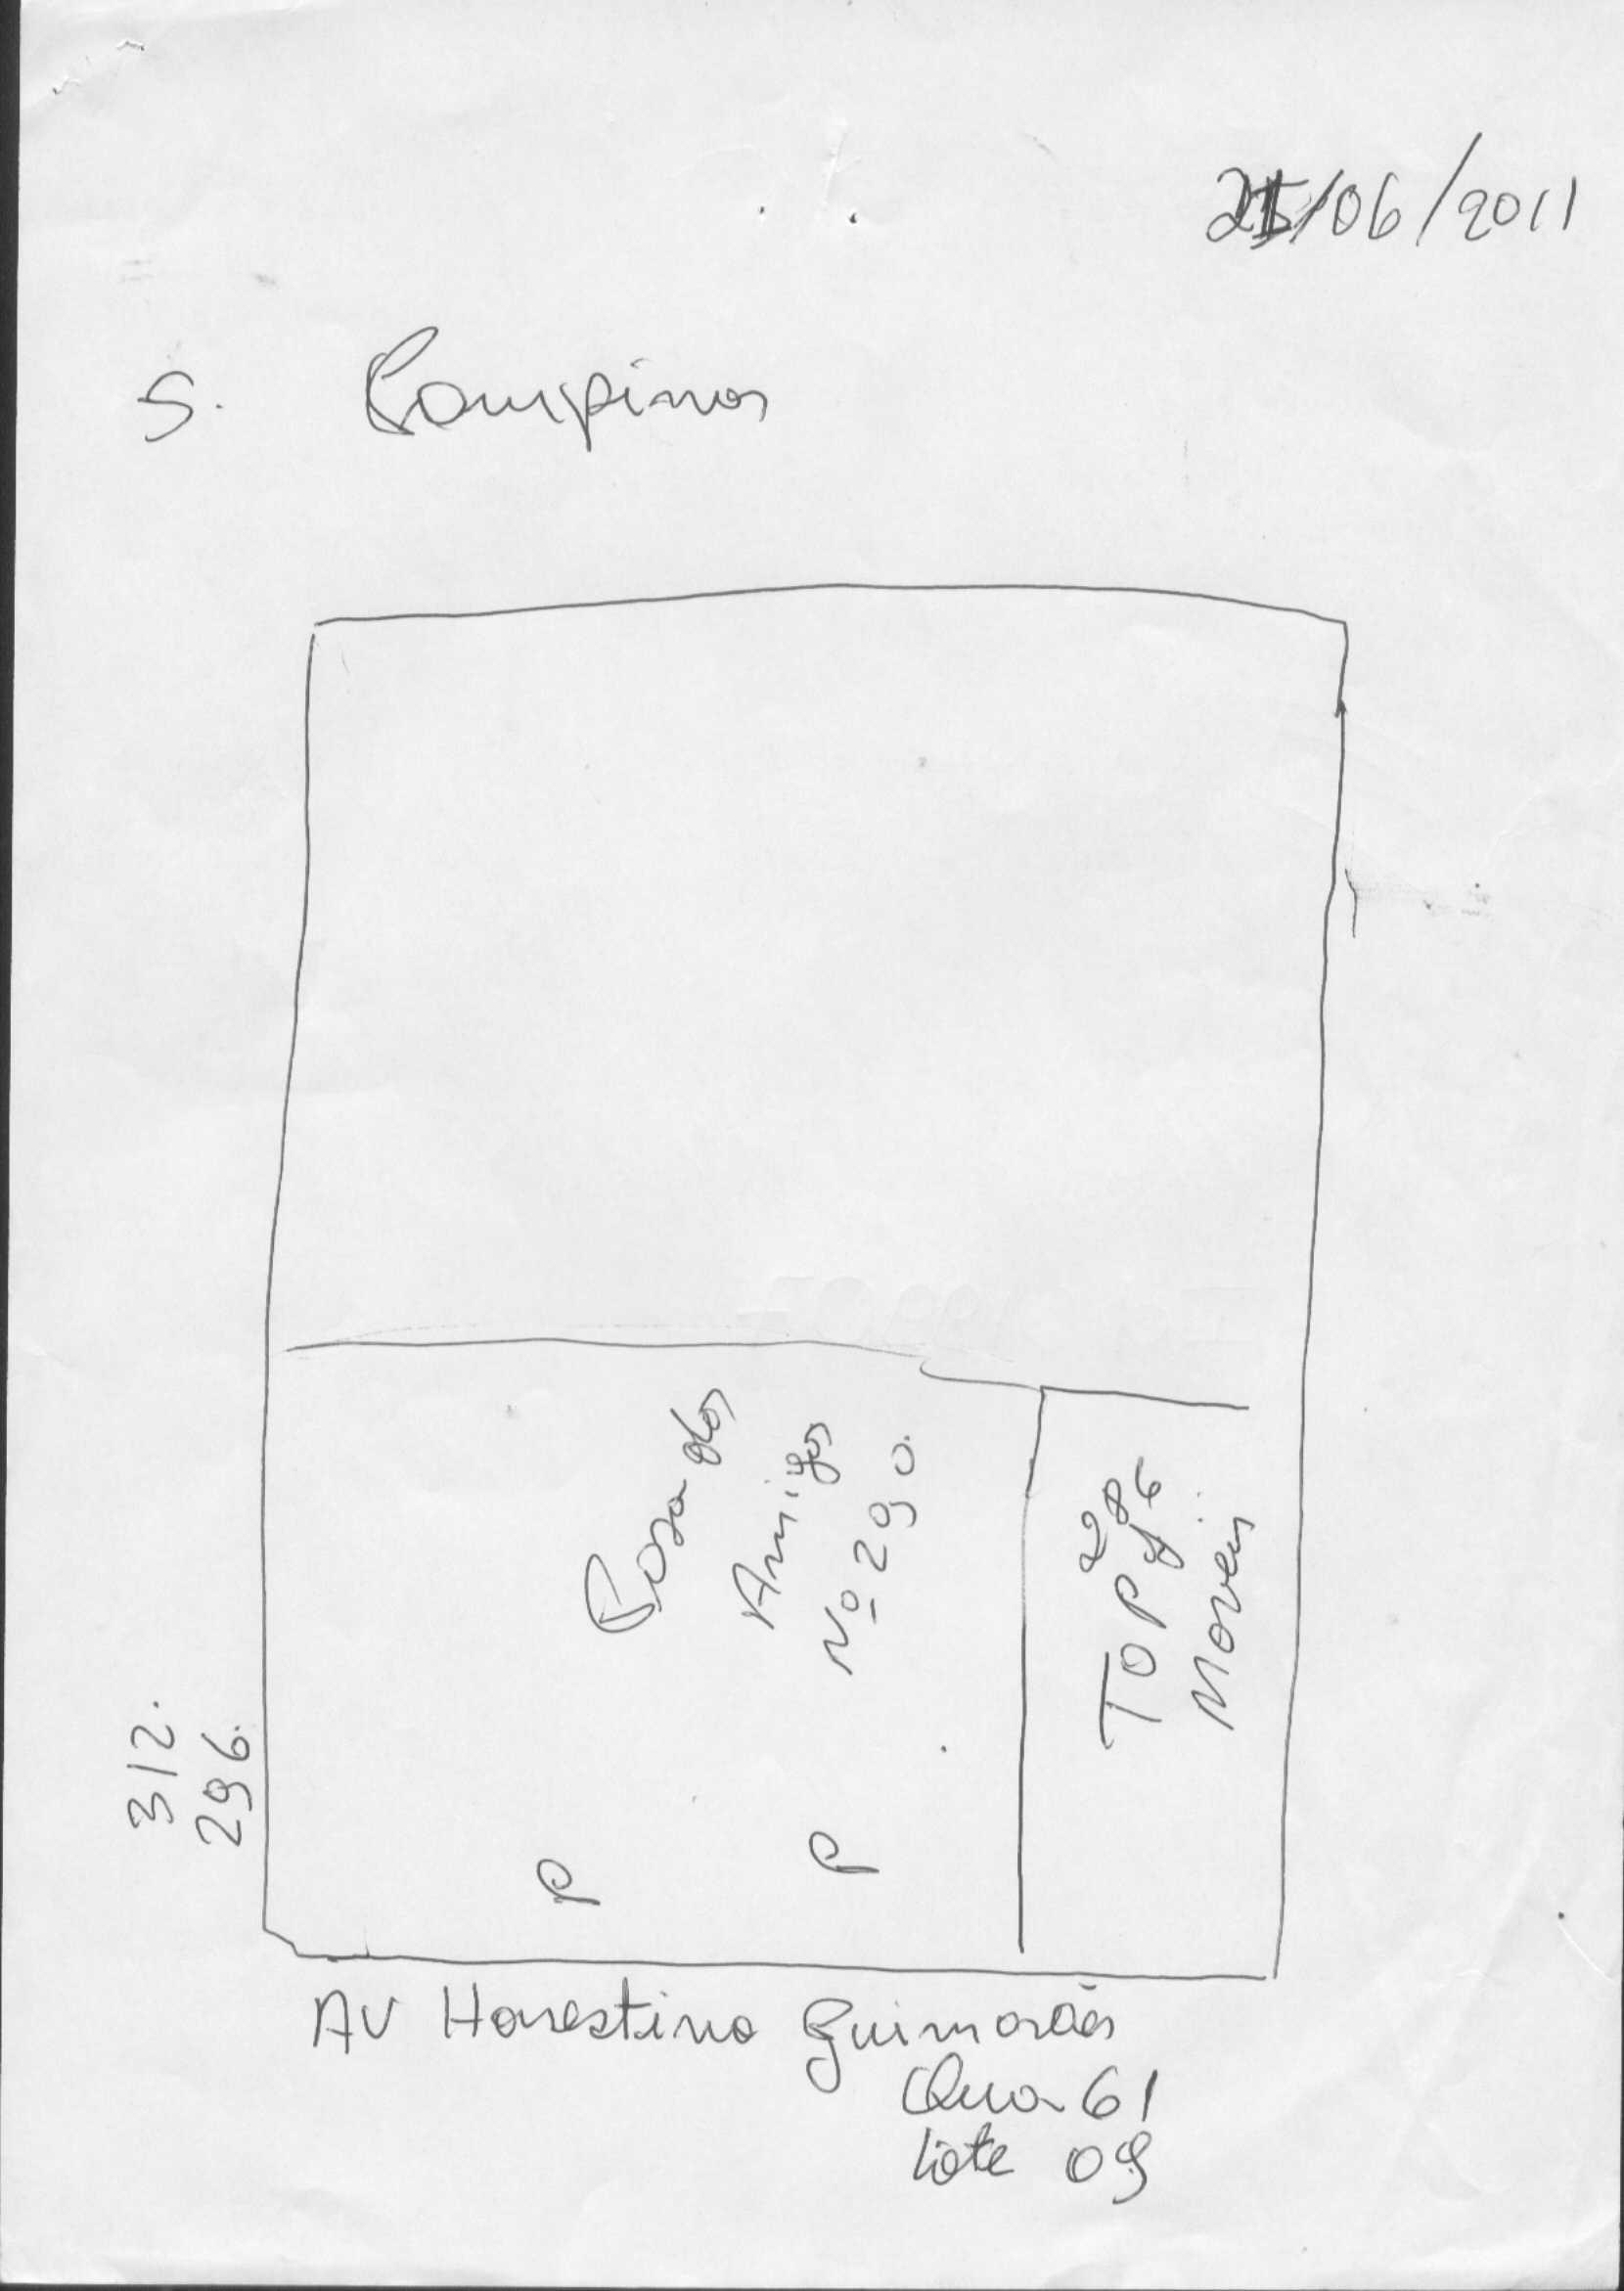 /06/2011
S. Campinas
Posa dos
Amigos
Nº 290.
TOP
Moveis
312.
296.
P
P
AV Honestino Guimarães
Qua 61
Lote 09